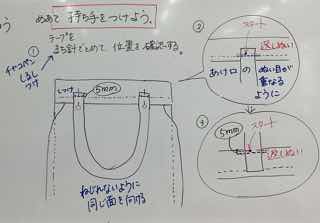 めあて 持ち手をつけよう。
① テープを
まち針でとめて、位置を確認する。
チャコペン
しるし
つけ
しつけ
5mm
ねじれないように
同じ面を付ける
③
スタート
返しぬい
あけ口の
ぬい目が
重なる
ように
④
スタート
5mm
返しぬい